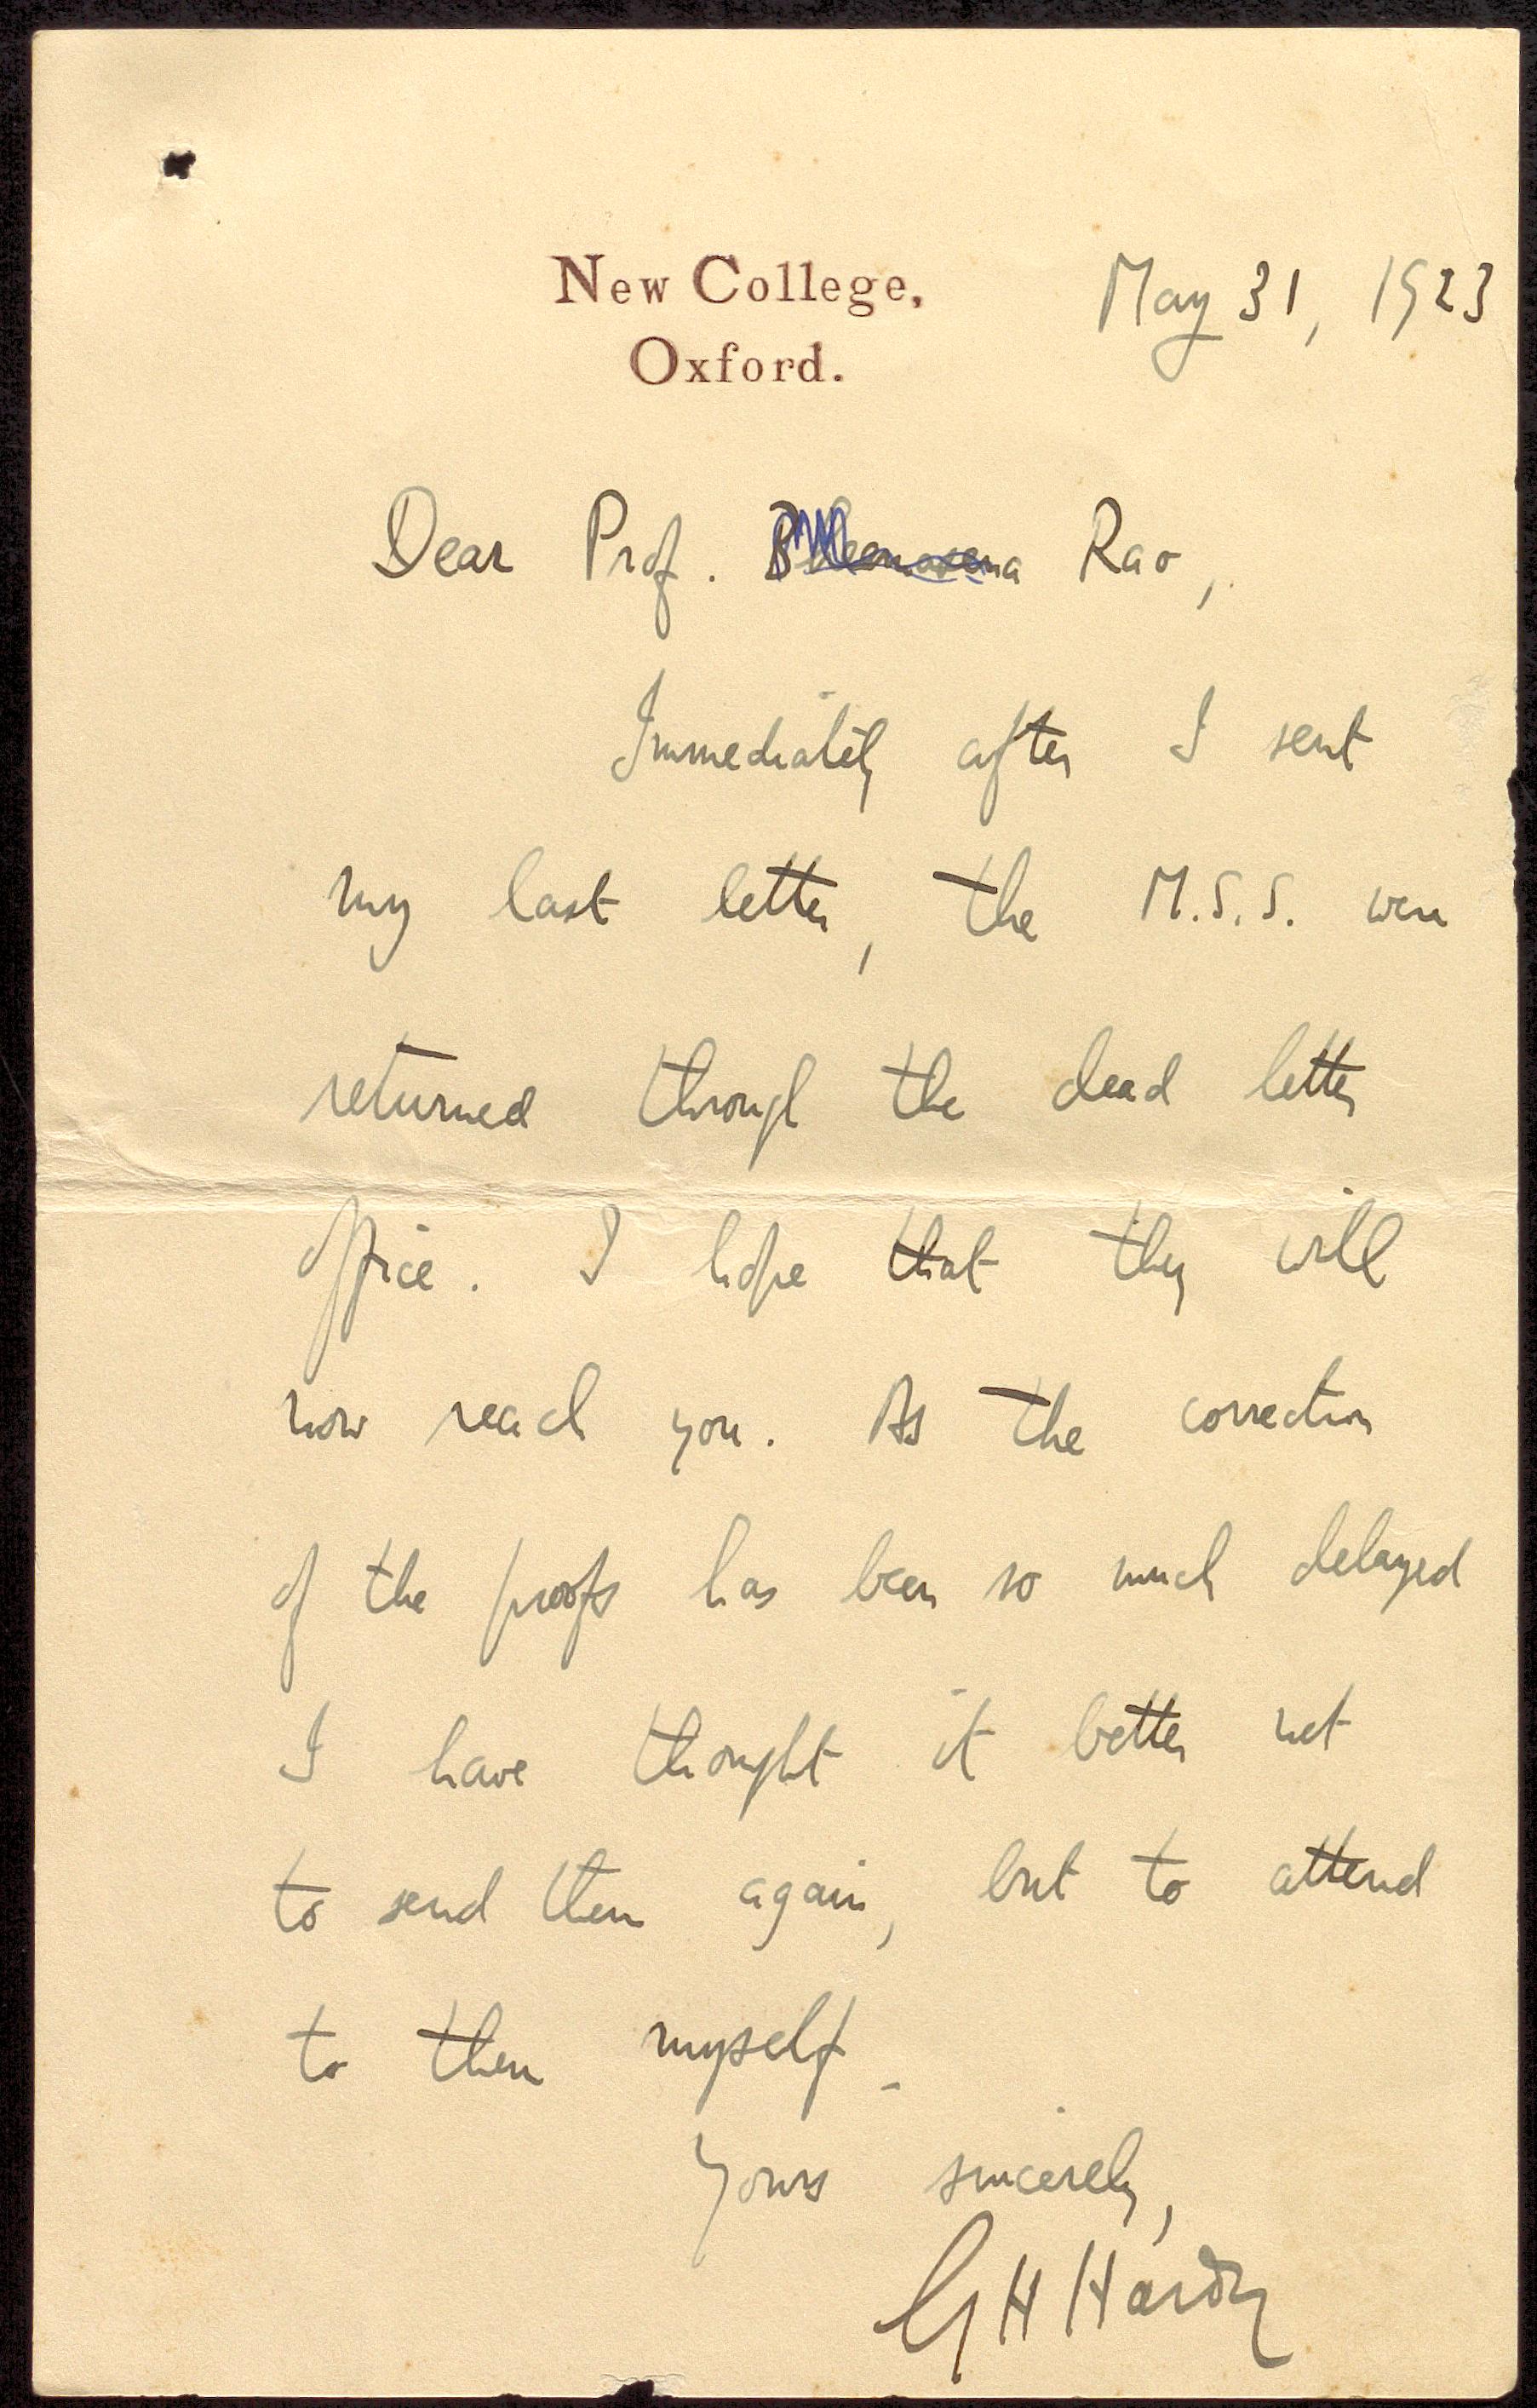 New College,
Oxford.
May 31, 1923
Dear Prof. Bheemasena Rao,
Immediately after I sent
my last letter, the M.S.S. were
returned through the dead letter
office. I hope that they will
now reach you. As the correction
of the proofs has been so much delayed
I have thought it better not
to send them again, but to attend
to them myself.
Yours sincerely,
G H Hardy